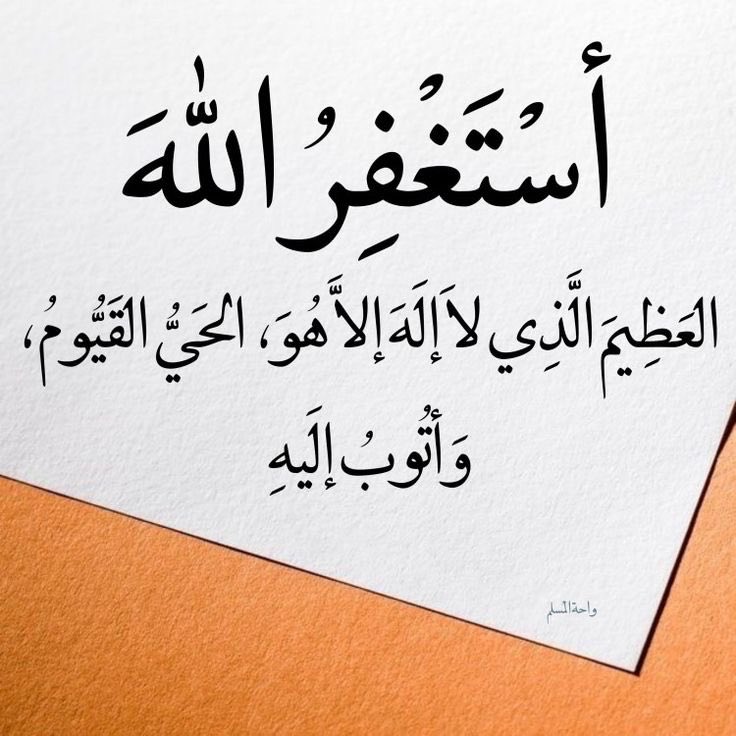 أَسْتَغْفِرُ اللهَ
العَظِيمَ الَّذِي لاَ إلَهَ إلاَّ هُوَ، الحَيُّ القَيُّومُ،
وَأتُوبُ إلَيهِ
واحة المسلم